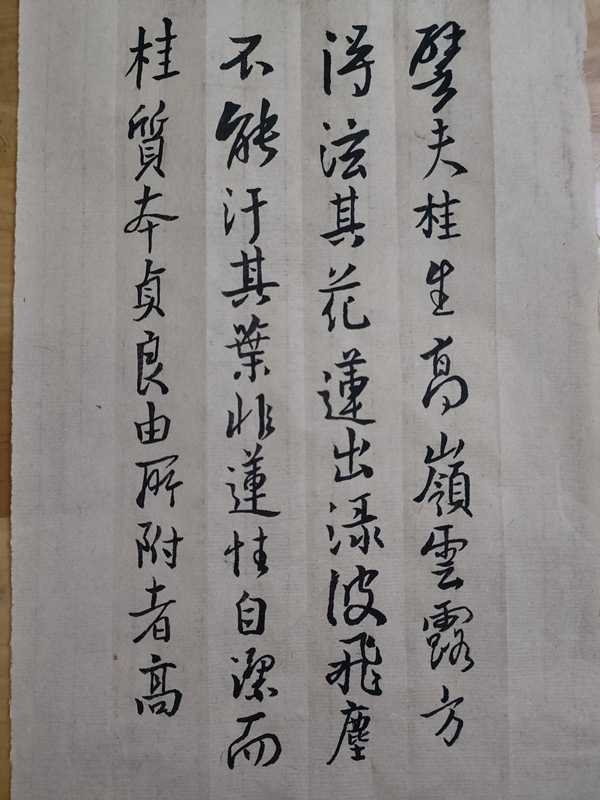 譬夫桂生高嶺雲露方
得泫其花蓮出渌波飛塵
不能汙其葉非蓮性自潔而
桂質本貞良由所附者高